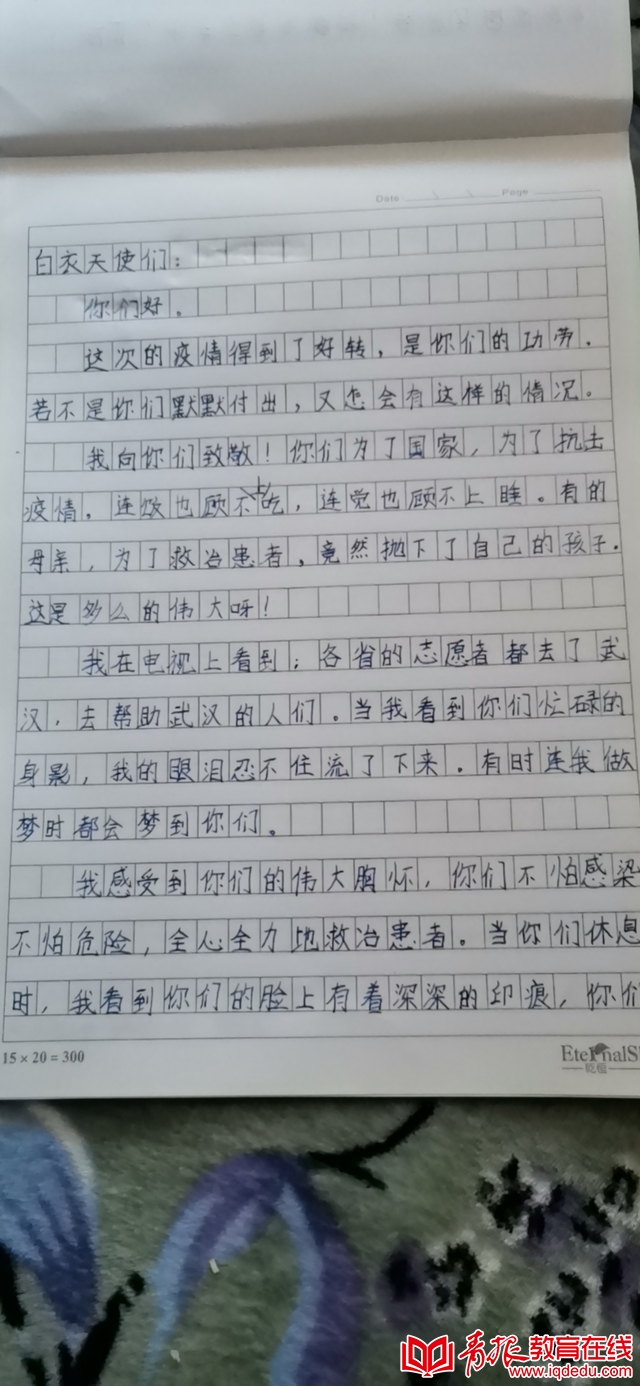 Date / / Page
白衣天使们：
你们好。
这次的疫情得到了好转，是你们的功劳.
若不是你们默默付出，又怎会有这样的情况。
我向你们致敬！你们为了国家，为了抗击
疫情，连饭也顾不上吃，连觉也顾不上睡。有的
母亲，为了救治患者，竟然抛下了自己的孩子.
这是多么的伟大呀！
我在电视上看到；各省的志愿者都去了武
汉，去帮助武汉的人们。当我看到你们忙碌的
身影，我的眼泪忍不住流了下来.有时连我做
梦时都会梦到你们。
我感受到你们的伟大胸怀，你们不怕感染
不怕危险，全心全力地救治患者。当你们休息
时，我看到你们的脸上有着深深的印痕，你们
15×20=300
EternalS
青报教育在线
www.iqdedu.com